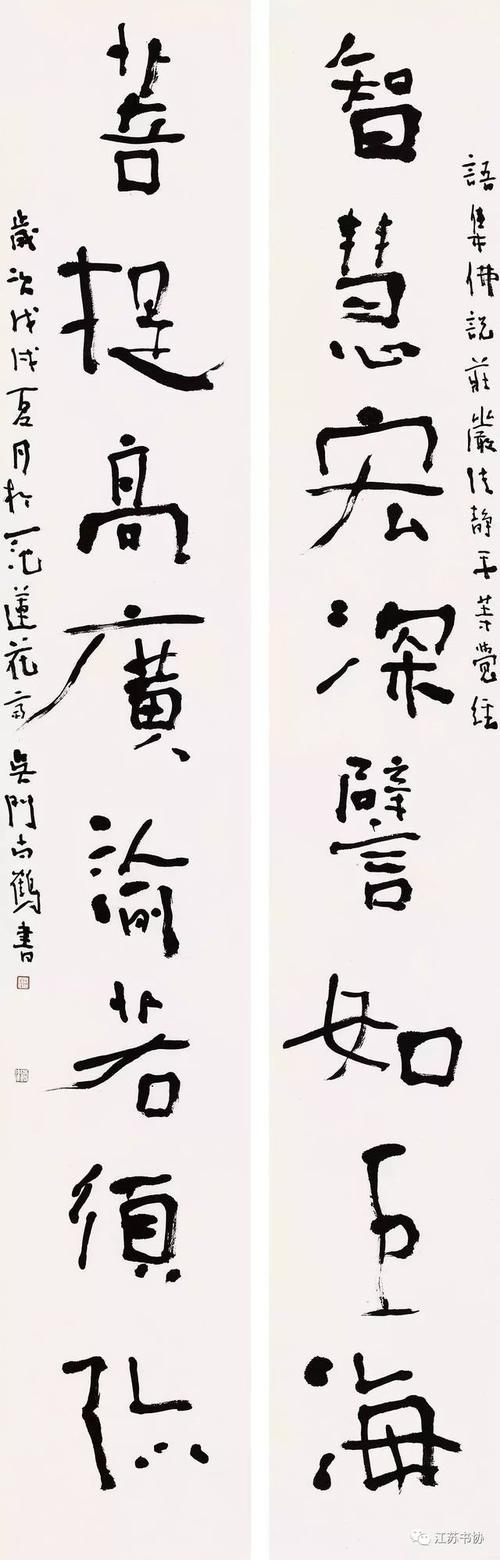 語集佛説莊嚴清静平等覺經
智慧宏深譬如巨海
菩提高廣渝若須弥
歲次戊戌夏月於一范蓮花斋 吳門六鶴書
江苏书协